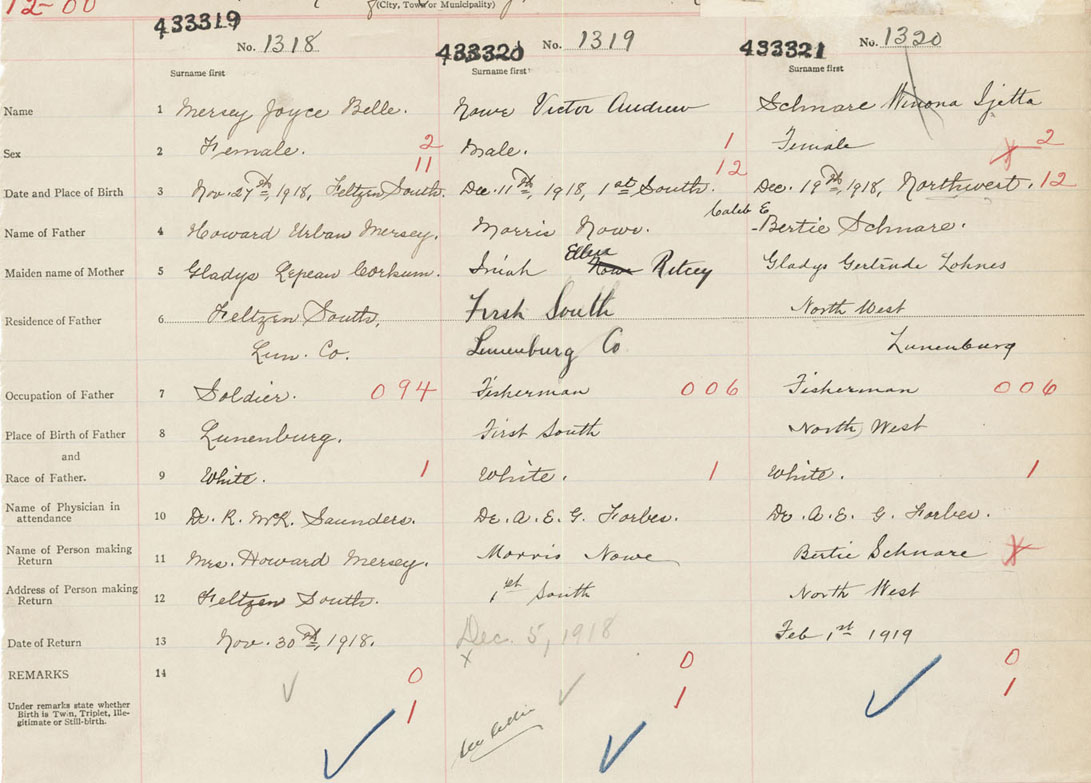 12-00
(City, Town or Municipality)
433319
No. 1318
433320
No. 1319
433321
No. 1320
Surname first
Surname first
Surname first
Name 1 Mersey Joyce Belle. Nowe Victor Andrew Schnare Winona Izetta
Sex 2 Female. 2 Male. 1 Female X 2
11 12
Date and Place of Birth 3 Nov. 27th, 1918, Feltzen South. Dec. 11th, 1918, 1st South. Dec. 19th, 1918, Northwest. 12
Caleb E
Name of Father 4 Howard Urban Mersey. Morris Nowe. Bertie Schnare.
Ellen
Maiden name of Mother 5 Gladys Corkum. Nowe Ritcey Gladys Gertrude Lohnes
Residence of Father 6 Feltzen South, First South North West
Lun. Co. Lunenburg Co Lunenburg
Occupation of Father 7 Soldier. 094 Fisherman 006 Fisherman 006
Place of Birth of Father 8 Lunenburg. First South North West
and
Race of Father. 9 White. 1 White. 1 White. 1
Name of Physician in
attendance 10 Dr. R. McK. Saunders. Dr. A. E. G. Forbes. Dr. A. E. G. Forbes.
Name of Person making
Return 11 Mrs. Howard Mersey. Morris Nowe Bertie Schnare X
Address of Person making
Return 12 Feltzen South. 1st South North West
Date of Return 13 Nov. 30th, 1918. Dec. 5, 1918 Feb 1st 1919
x
REMARKS 14 0 0 0
Under remarks state whether
Birth is Twin, Triplet, Ille-
gitimate or Still-birth.
1 1 1